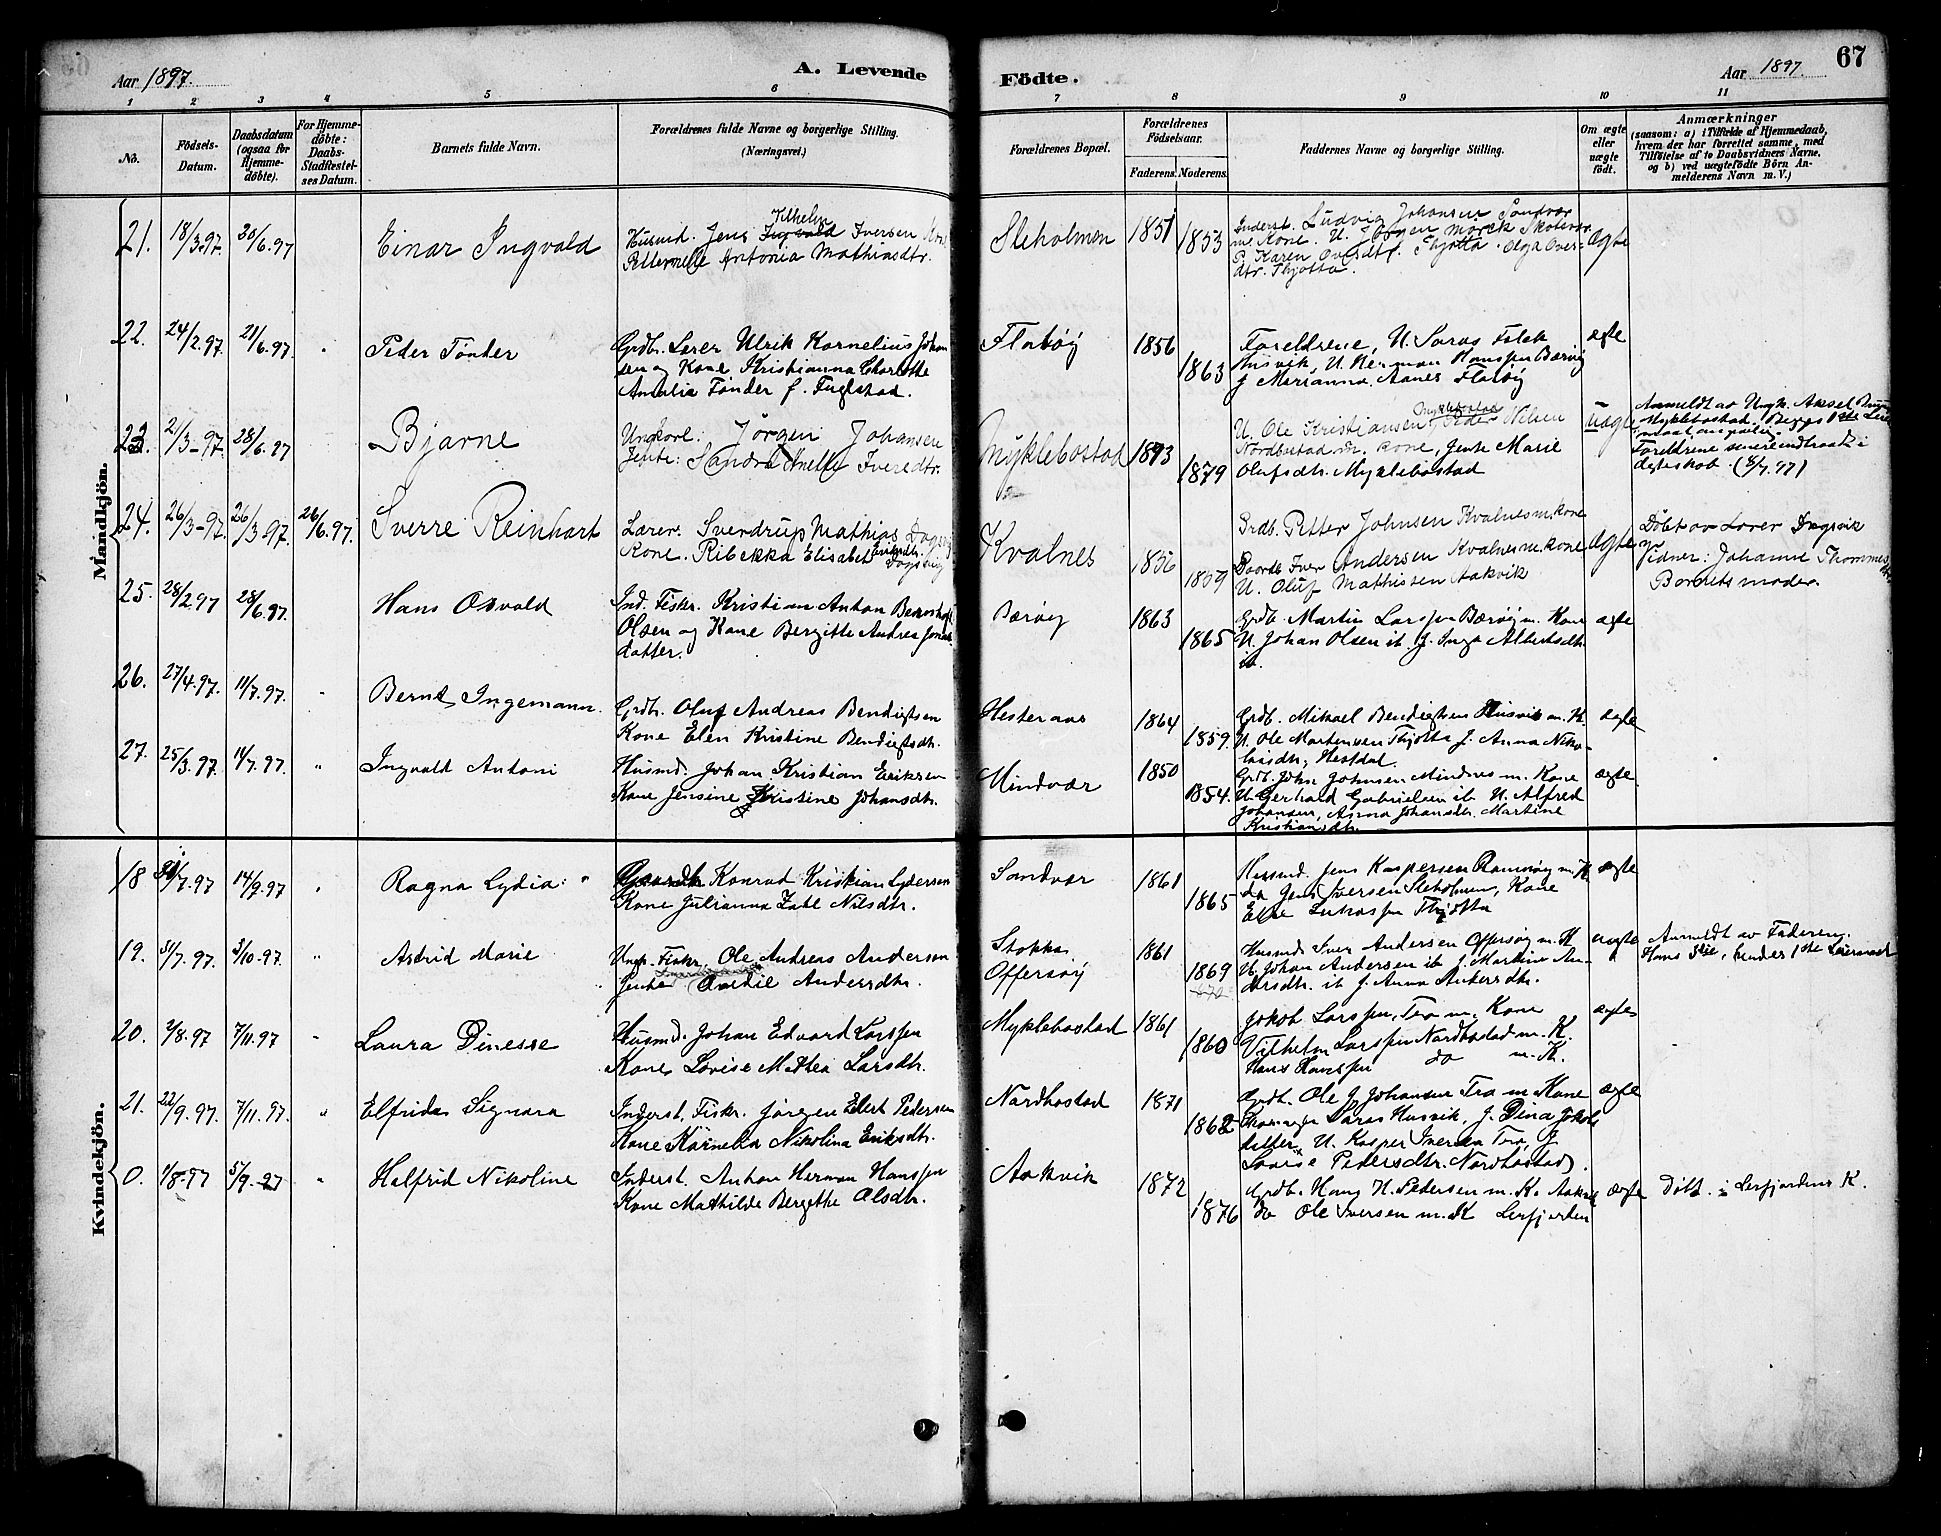 Aar 1897.
A. Levende
Födte.
Aar 1897.
67
1 2 3 4 5 6 7 8 9 10 11
No.
Födsels-
Datum.
Daabsdatum
(ogsaa for
Hjemme-
döbte).
For Hjemme-
döbte:
Daabs-
Stadfæstel-
ses Datum.
Barnets fulde Navn.
Forældrenes fulde Navne og borgerlige Stilling.
(Næringsvei.)
Forældrenes Bopæl.
Forældrenes
Födselsaar.
Faderens. Moderens.
Faddernes Navne og borgerlige Stilling.
Om ægte
eller
uægte
födt.
Anmærkninger
(saasom: a) i Tilfælde af Hjemmedaab,
hvem der har forrettet samme, med
Tilföielse af to Daabsvidners Navne,
og b) ved uægtefödte Börn An-
melderens Navn m. V.)
Mandkjön.
21. 18/3.97. 20/6.97 Einar Ingvald
Husmd. Jens Vilhelm Iversen Kone
Antonia Mathiasdtr.
Sleholmen 1851 1853
Inderst. Ludvig Johansen Sandvær
m. Kone. U. Jörgen
Karen Thjotta. Olga Iver-
dtr. Thjotta.
Ægte
22. 24/2.97. 21/6.97. Peder Tönder
Grdbr. Lærer Ulrik Kornelius Johan
sen og Kone Kristianna Charlotte
Amalia Tönder f. Fuglstad.
Flatöy 1856 1863
Foreldrene, U. Saras Falck
Husvik, U. Herman Hanssen Bæröy
J Marianna Aanes Flatöy
ægte
23. 2/3-97. 28/6.97 Bjarne
Ungkarl: Jörgen Johansen
Jente: Sandra Anette Iversdtr.
Myklebostad 1873 1879
U. Ole Kristiansen Myklebostad Peder Nilsen
Nordbostad m. Kone, Jente Marie
Olufsdtr. Myklebostad
uægte
Anmeldt av Ungk. Aksel
Myklebostad. Begges 1ste Leier-
maal
Foreldrene senere indtraadt i
ægteskab. (4/7.97)
24. 26/3-97. 26/3.97. 26/6.97. Sverre Reinhart
Lærer. Sverdrup Mathias Dagsvig
Kone. Ribekka Elisabet Eriksdtr. Dagsvig
Kvalnes 1856 1859
Grdb. Petter Johnsen Kvalnes m. kone
Gaardb. Iver Andersen Kvalnes m. kone
U. Oluf Mathissen Aakvik
ægte
Döbt av Lærer Dagsvik
Vidner: Johanne Thommes
Barnets moder.
25. 28/2.97 28/6.97. Hans Osvald
Ind. Fiskr. Kristian Anton Bernhof
Olsen og Kone Bergitte Andrea Jons
datter.
Bæröy 1863 1865
Grdb. Martin Larssen Bæröy m. Kone
U. Johan Olsen ib. J. Inga Albertsdtr.
ib.
ægte
26. 27/4.97. 11/7.97. Bernt Ingemann
Grdb. Oluf Andreas Bendigtsen
Kone Elen Kristine Bendigtsdtr.
Hesteraas 1864 1859.
Grdb. Mikael Bendigtsen Husvik m. K.
U. Ole Martensen Thjotta J. Anna Niko-
laisdtr. Hestdal.
ægte
27. 25/3.97. 11/7.97. Ingvald Antoni
Husmd. Johan Kristian Eriksen
Kone Jensine Kristine Johansdtr.
Mindvær 1850 1854.
Grdb. John Johnsen Mindnes m. Kone
U. Gerhard Gabrielsen ib U. Alfred
Johansen, Anna Johansdtr. Martine
Kristiansdtr.
ægte
Kvindekjön.
18 /7.97 14/9.97 Ragna Lydia
Gaardb. Konrad Kristian Lydersen
Kone Julianna Zahl Nilsdtr.
Sandvær 1861 1865
Husmd. Jens Kaspersen m. K.
do Jens Iversen Sleholmen, Kone
Else Lukassen Thjotta
ægte
19. 31/7.97. 3/10.97 Astrid Marie
Ungk. Fiskr. Ole Andreas Andersen
Jente Andersdtr.
Stokka
Offersöy 1861 1869
Husmd Iver Andersen Offersöy m. K
U. Johan Andersen ib J. Martine An-
dersdtr. ib J. Anna Andersdtr.
uægte
Anmeldt av Faderen.
Hans 3die, hendes 1ste Leiermaal
20. 2/8.97 7/11.97 Laura Dinesse
Husmd. Johan Edvard Larssen
Kone Lovise Mathea Larsdtr.
Myklebostad 1861 1860
Jakob Larssen, Tro m. Kone
Vilhelm Larssen Nordbostad m. K.
Hans Hanssen do m. K.
ægte
21. 22/9.97. 7/11.97. Elfrida Signora
Inderst. Fiskr. Jörgen Elert Pedersen
Kone Kornelia Nikolina Eriksdtr.
Nordbostad 1871 1862
Grdb. Ole J Johansen Tro m Kone
Saras Husvik, J. Dina Jakobs
datter U. Kasper Iversen Tro, J
Lovise Pedersdtr. Nordbostad.
ægte
0. 1/8-97 5/9-97 Halfrid Nikoline
Inderst. Anton Herman Hanssen
Kone Mathilde Bergethe Olsdtr.
Aakvik 1872 1876
Grdb. Hans H. Pedersen m. K. Aakvik
do Ole Iversen m. K Lerfjorden
ægte
Döbt i Lerfjordens K.